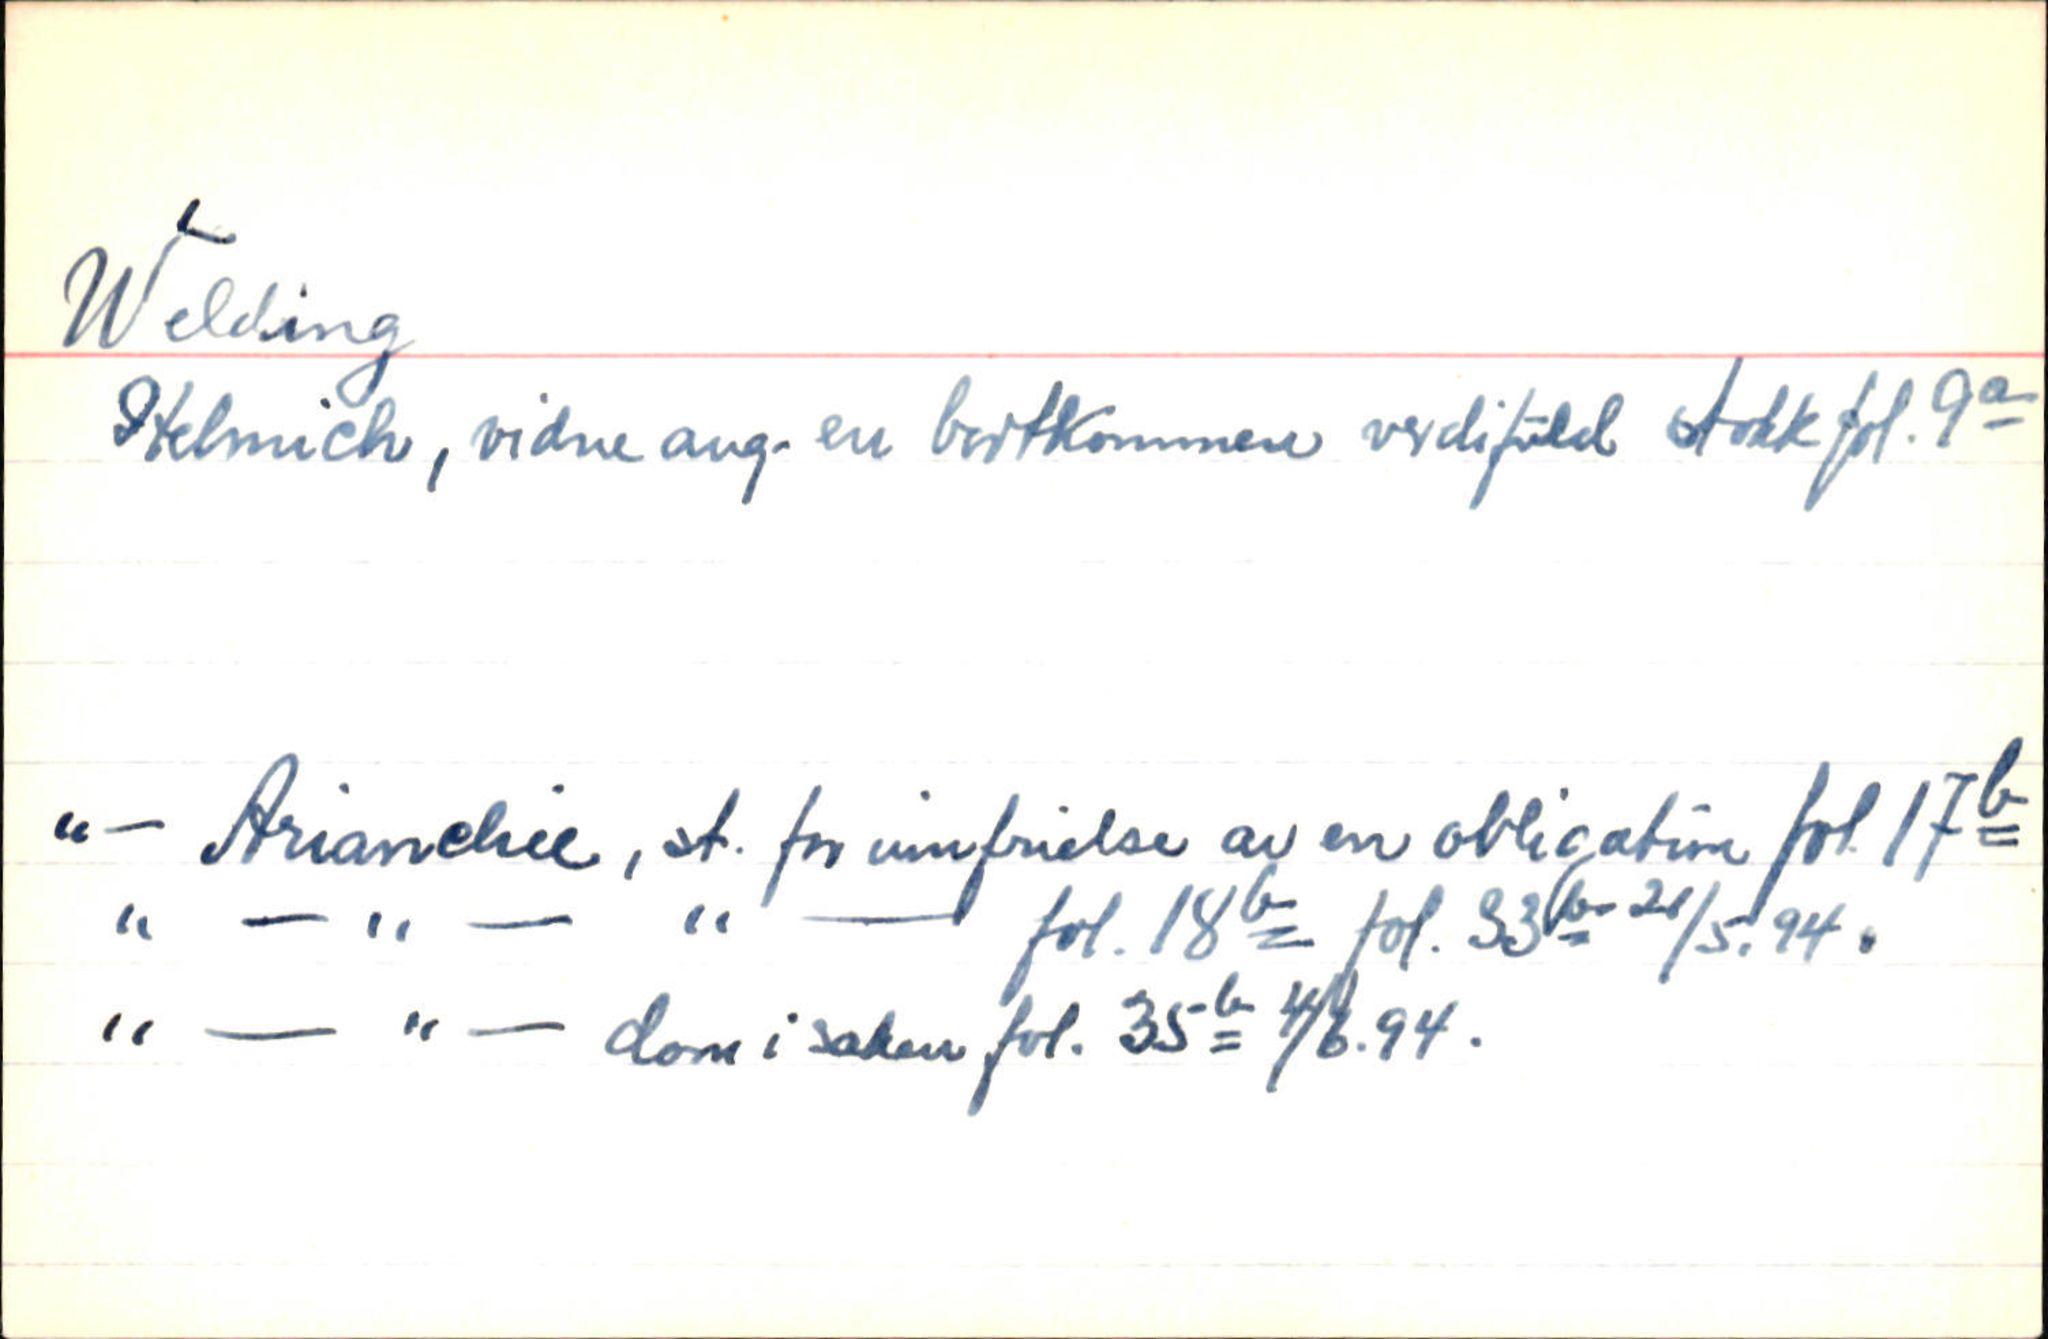 Welding
Helmich, vidne ang. en bortkommen verdifuld stokk fol. 9a
"— Arianchie, st. for innfrielse av en obligation fol. 17b
" — " — " — fol. 18b fol. 33b 21/5.94.
" — " — dom i saken fol. 35b 4/6.94.